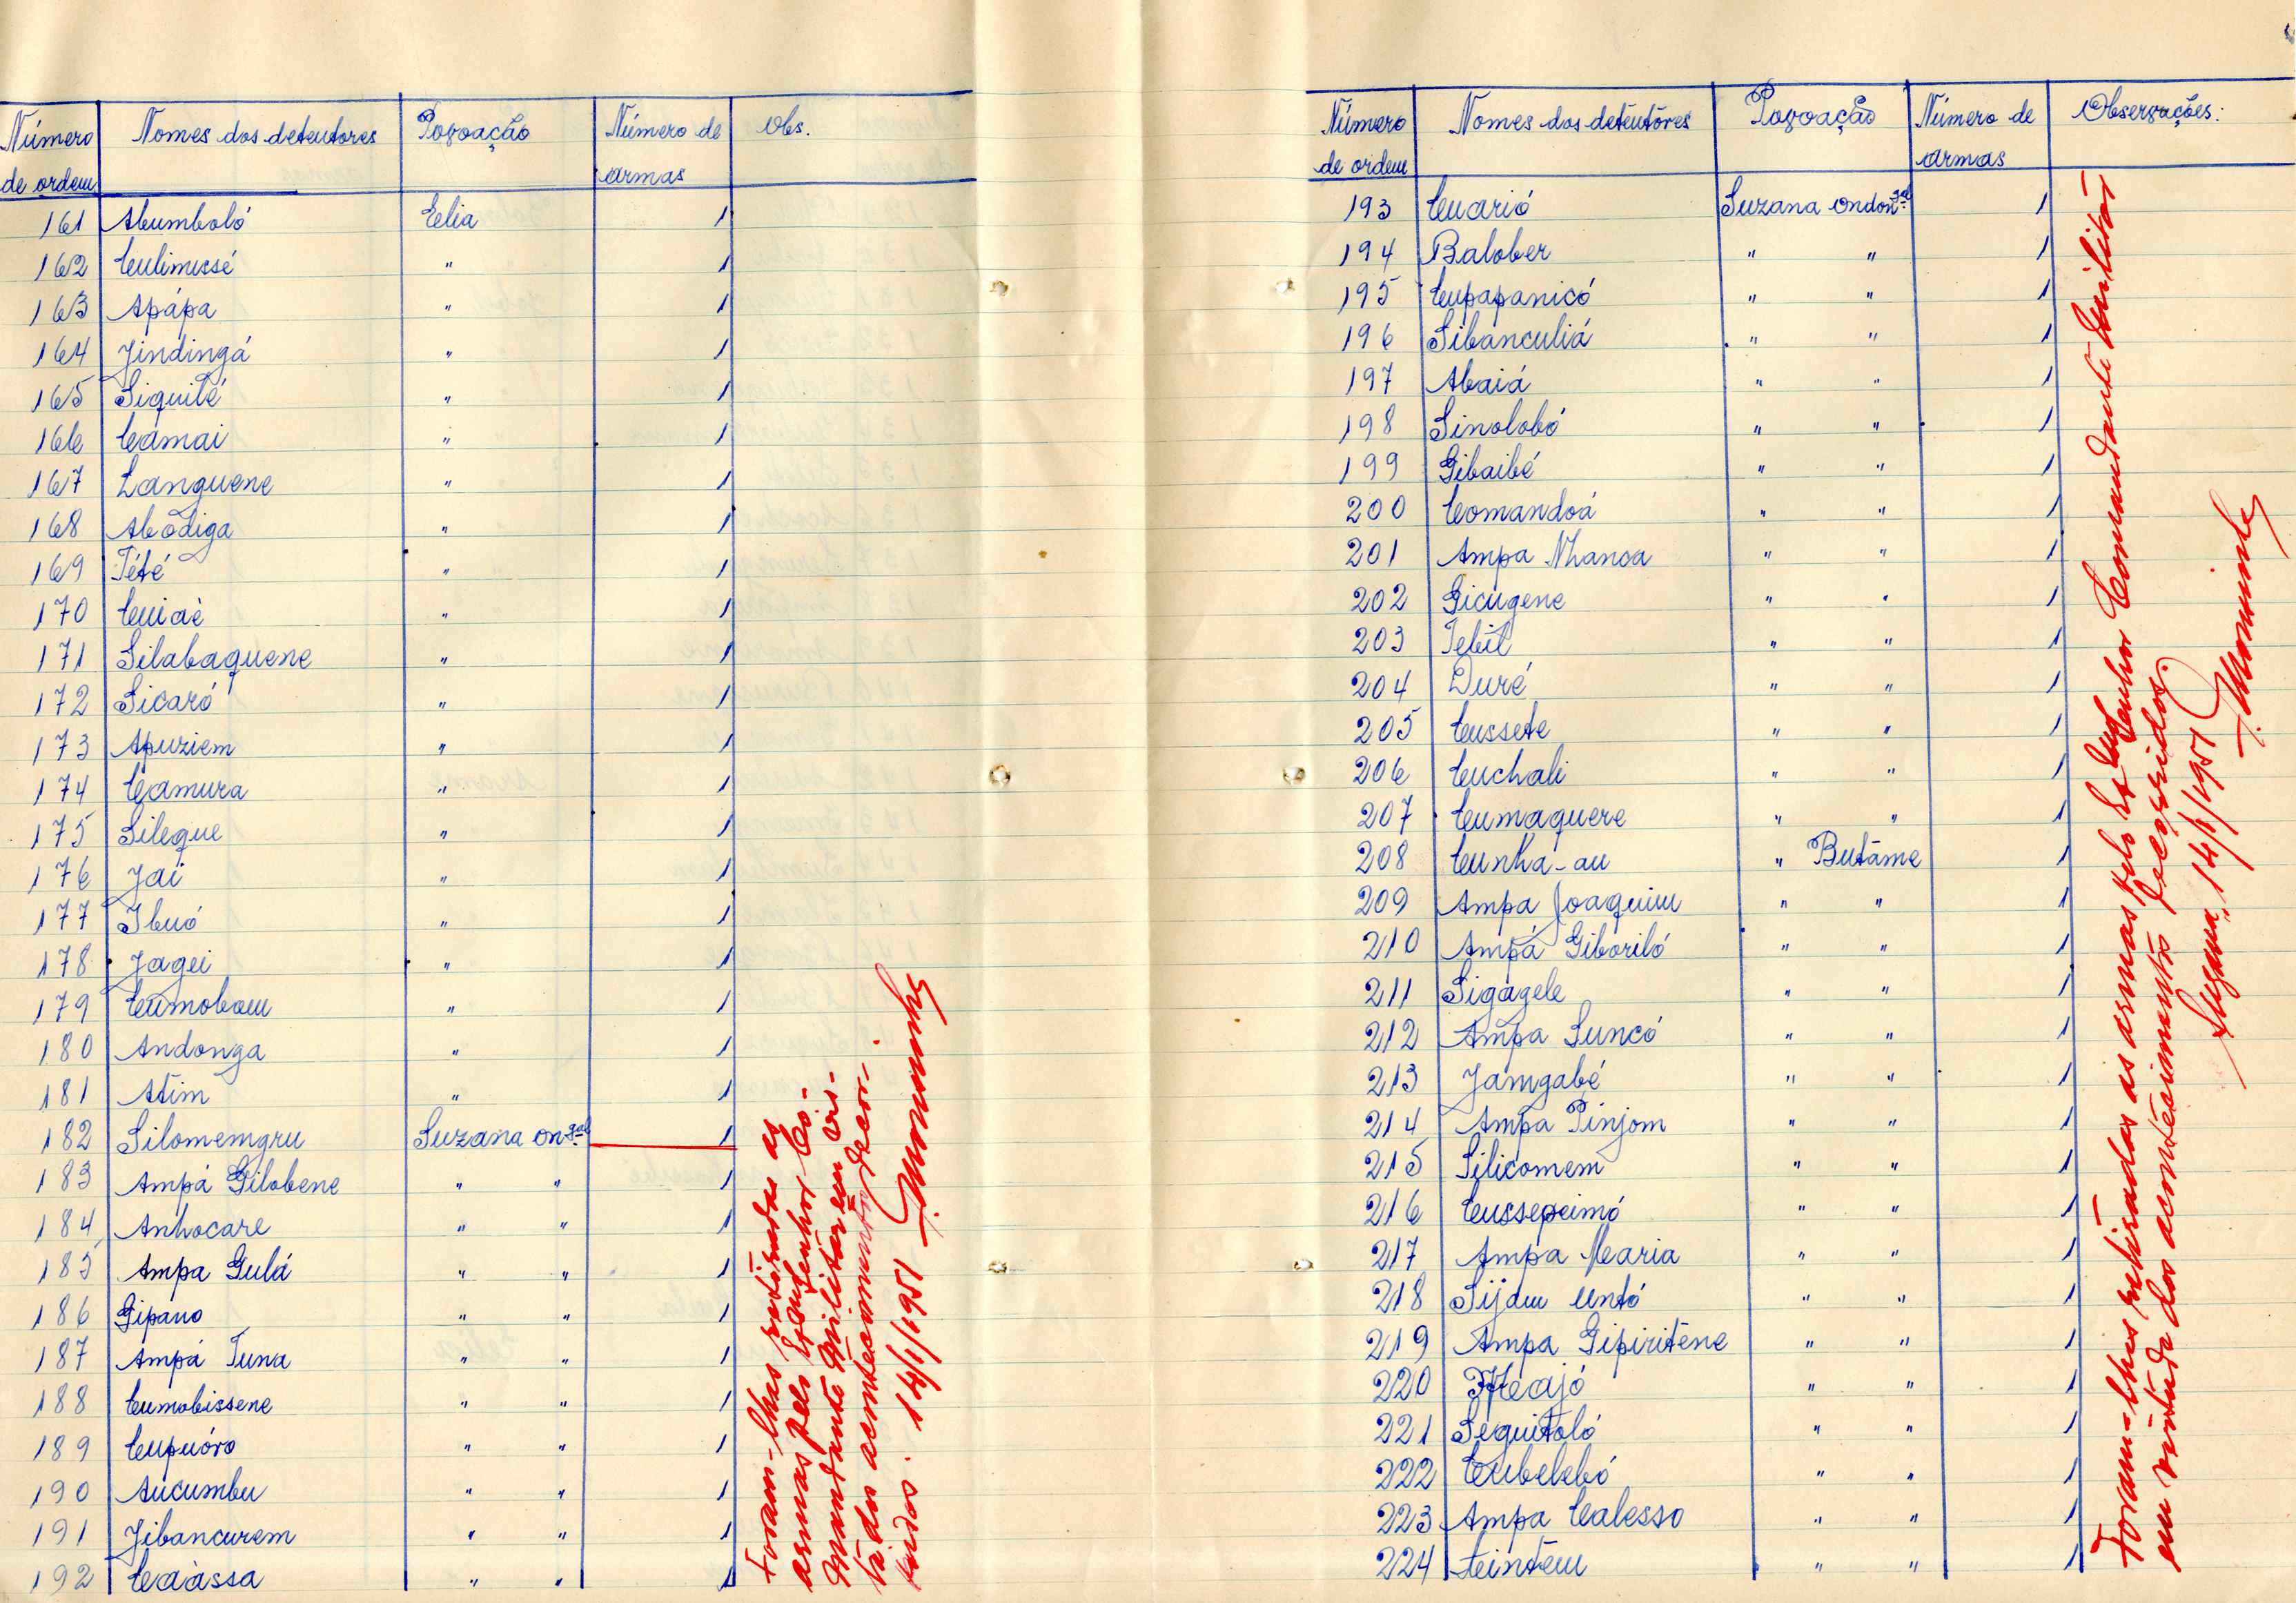 Número de ordem Nomes dos detentores Povoação Número de armas Obs.
161 Abumboló Elia 1
162 Culimissé " 1
163 Apápa " 1
164 Jindingá " 1
165 Siquilé " 1
166 Cámai " 1
167 Languene " 1
168 Abódiga " 1
169 Tété " 1
170 Cuiaè " 1
171 Silabaquene " 1
172 Sicaró " 1
173 Apuziem " 1
174 Camura " 1
175 Sileque " 1
176 Jai " 1
177 Ibuó " 1
178 Jagei " 1
179 Cumobam " 1
180 Andonga " 1
181 Atim " 1
182 Silomemgru Suzana on gal 1
183 Ampá Gilobene " " 1
184 Anhocare " " 1
185 Ampa Gulá " " 1
186 Gipano " " 1
187 Ampá Tuna " " 1
188 Cumobissene " " 1
189 Cupuóro " " 1
190 Aucumbu " " 1
191 Jibancurem " " 1
192 Caàssa " " 1
Foram-lhes retiradas as
armas pelo Senhor Co-
mandante Militar em vir-
tude dos acontecimentos decor-
ridos. 14/1/1951
Número de ordem Nomes dos detentôres Povoação Número de armas Observações:
193 Cuarió Suzana ondongal 1
194 Balober " " 1
195 Cupapanicó " " 1
196 Sibanculiá " " 1
197 Abaiá " " 1
198 Sinolobó " " 1
199 Gibaibé " " 1
200 Comandoá " " 1
201 Ampa Nhanca " " 1
202 Gicugene " " 1
203 Tebil " " 1
204 Duré " " 1
205 Cussete " " 1
206 Cuchali " " 1
207 Cumaquere " " 1
208 Cunha-au " Butame 1
209 Ampa Joaquim " " 1
210 Ampá Giboriló " " 1
211 Sigagele " " 1
212 Ampa Suncó " " 1
213 Jamgabé " " 1
214 Ampa Pinjom " " 1
215 Silicomem " " 1
216 Cussepeimó " " 1
217 Ampa Maria " " 1
218 Sijam Untó " " 1
219 Ampa Gipiritene " " 1
220 " " 1
221 Sequitoló " " 1
222 Cubelebó " " 1
223 Ampa Calesso " " 1
224 Aeintem " " 1
Foram-lhes retiradas as armas pelo Senhor Comandante Militar
em virtude dos acontecimentos decorridos.
Suzana, 14/1/1951